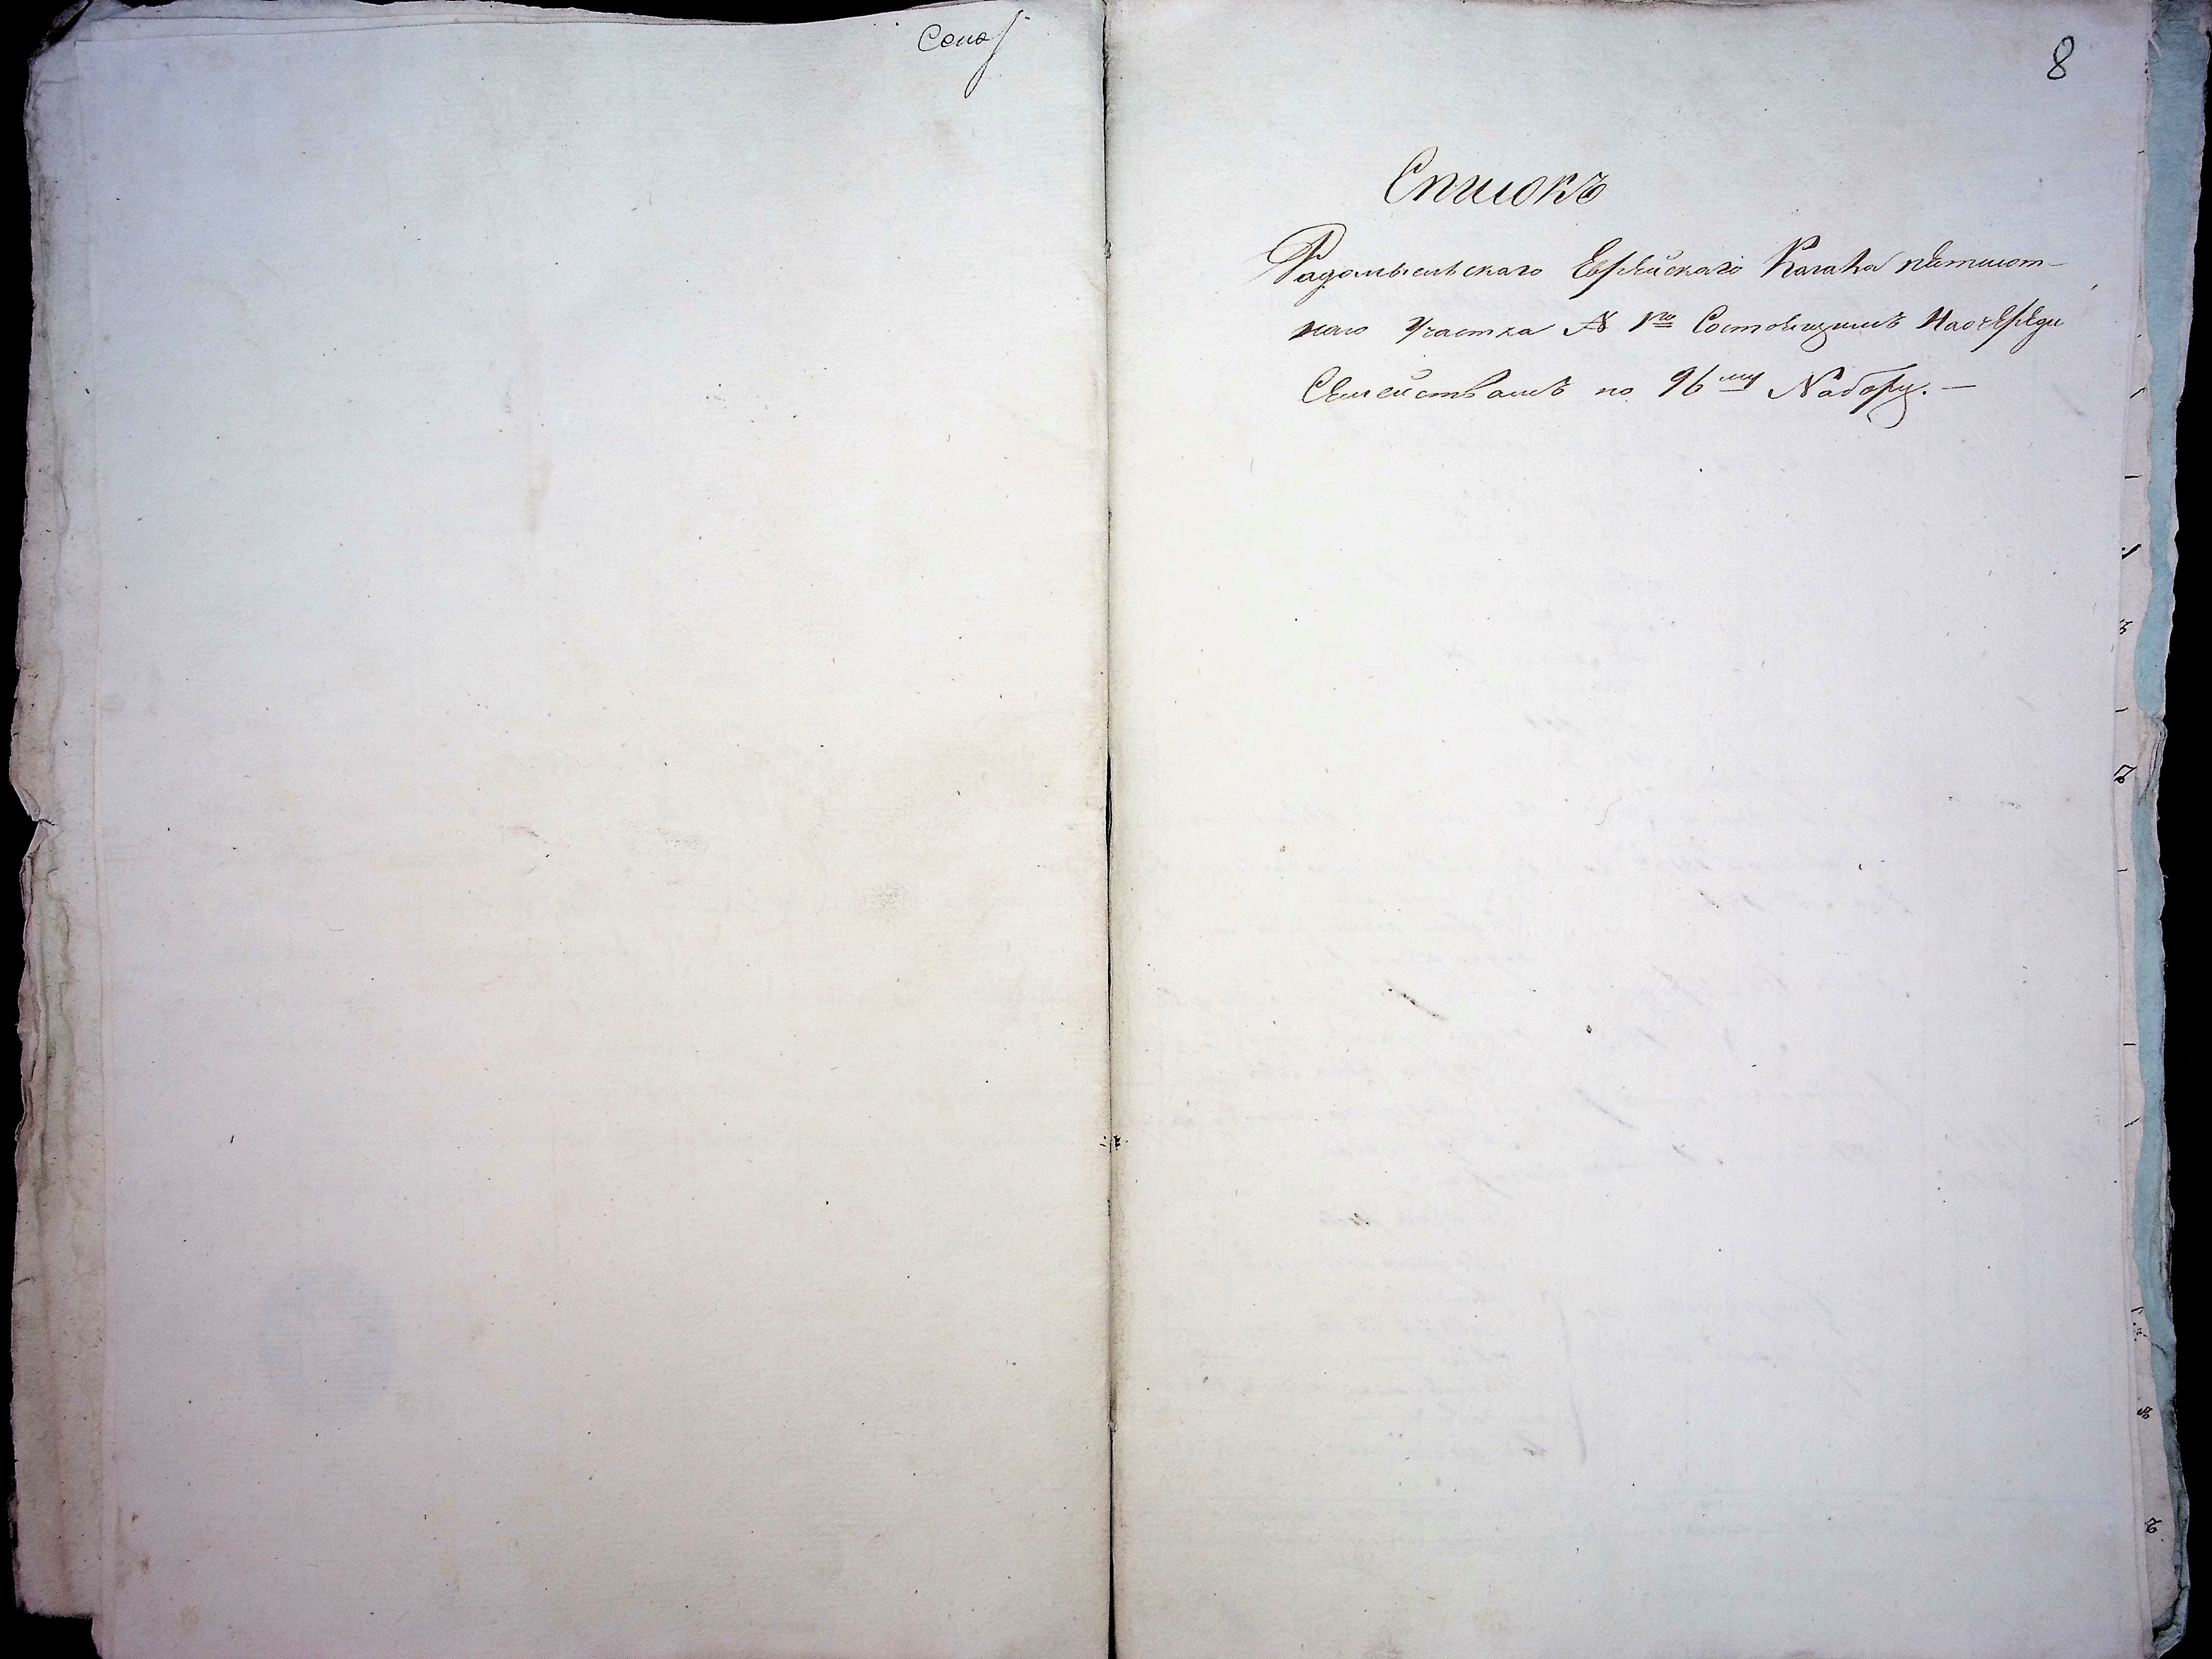 8
Списокъ
Радомысльскаго Еврейскаго Кагала пятисот-
наго Участка № 1го Состоящимъ На очереди
Семействамъ по 96му Набору. —